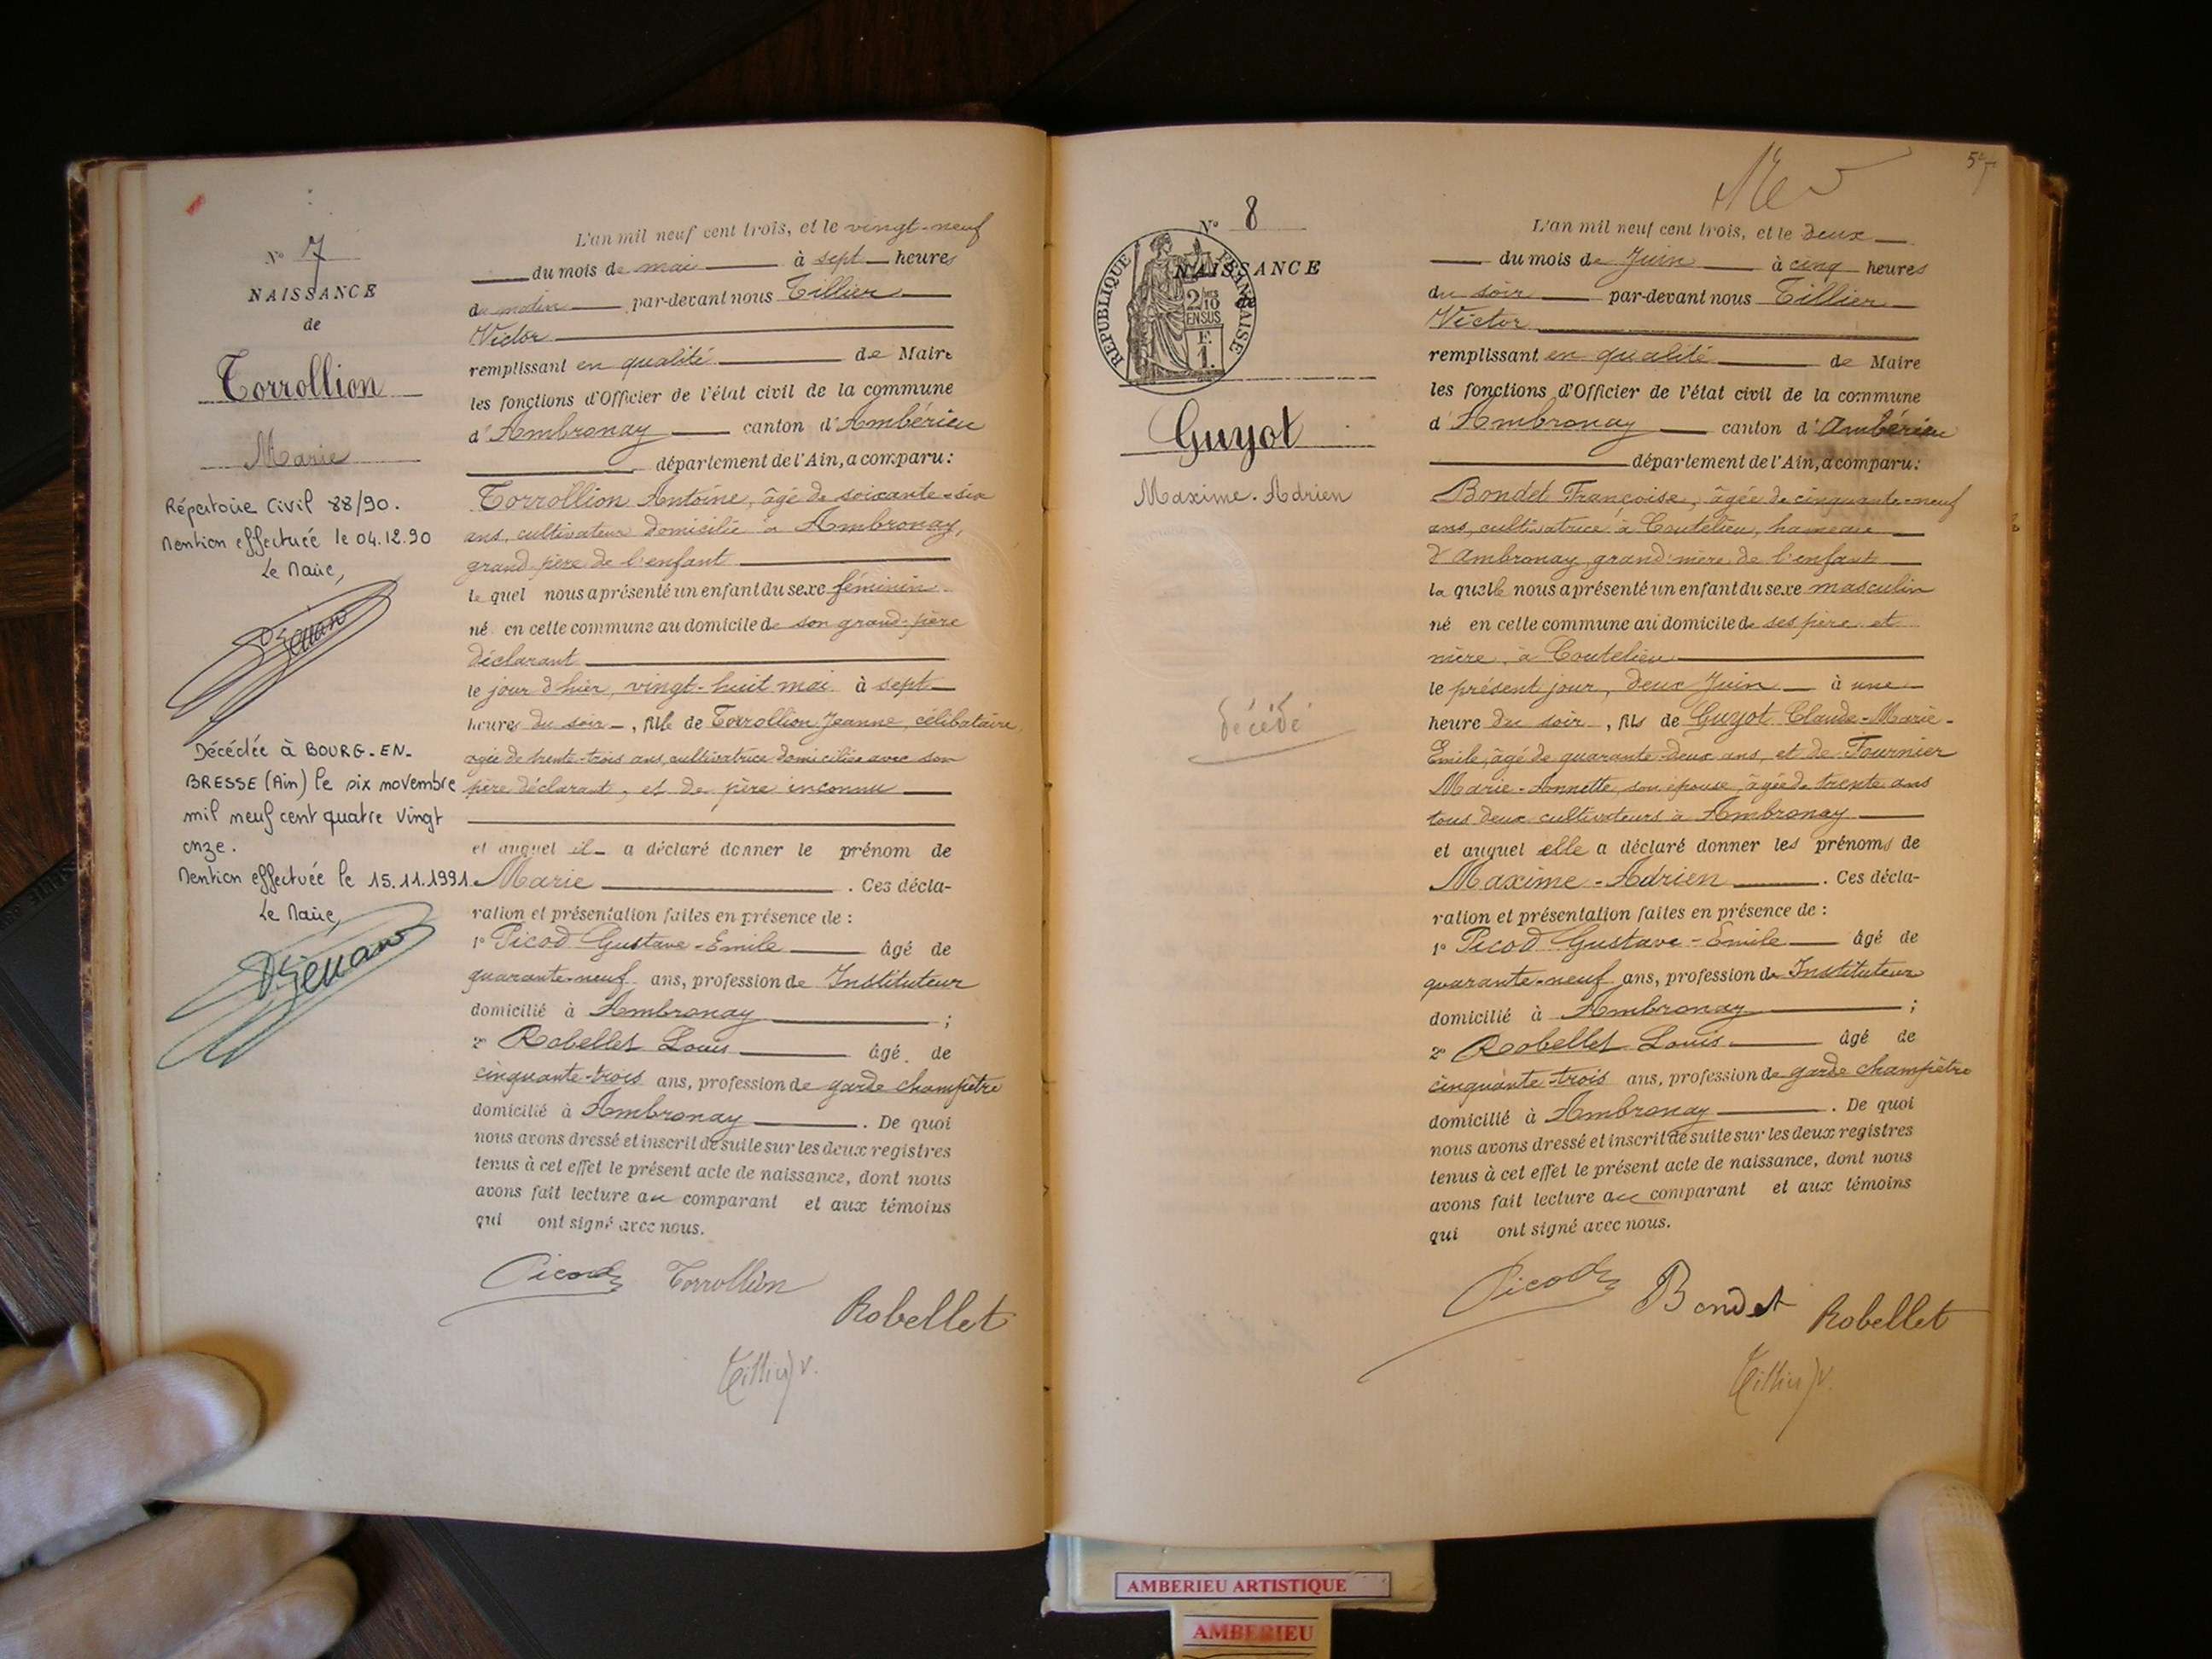 N° 7
NAISSANCE
de
Torrollion
Marie
Répertoire Civil 88/90.
Mention effectuée le 04.12.90
Le Maire,
Décédée à BOURG-EN-
BRESSE (Ain) le six novembre
mil neuf cent quatre vingt
onze.
Mention effectuée le 15.11.1991.
Le Maire,
L'an mil neuf cent trois, et le vingt-neuf
du mois de mai à sept heures
du matin par-devant nous Tillier
Victor
remplissant en qualité de Maire
les fonctions d'Officier de l'état civil de la commune
d'Ambronay canton d'Ambérieu
département de l'Ain, a comparu:
Torrollion Antoine, âgé de soixante-six
ans, cultivateur domicilié à Ambronay,
grand-père de l'enfant
le quel nous a présenté un enfant du sexe féminin
né en cette commune au domicile de son grand-père
déclarant
le jour d'hier, vingt-huit mai à sept
heures du soir, fille de Torrollion Jeanne, célibataire,
agée de trente-trois ans, cultivatrice domiciliée avec son
père déclarant, et de père inconnu
et auquel il a déclaré donner le prénom de
Marie. Ces décla-
ration et présentation faites en présence de:
1° Picod Gustave-Emile âgé de
quarante-neuf ans, profession de Instituteur
domicilié à Ambronay;
2° Robellet Louis âgé de
cinquante-trois ans, profession de garde champêtre
domicilié à Ambronay. De quoi
nous avons dressé et inscrit de suite sur les deux registres
tenus à cet effet le présent acte de naissance, dont nous
avons fait lecture au comparant et aux témoins
qui ont signé avec nous.
Picod Torrollion
Robellet
Tillier V.
N° 8
NAISSANCE
de
REPUBLIQUE FRANÇAISE
2/10
EN SUS
F.
1.
Guyot
Maxime-Adrien
décédé
L'an mil neuf cent trois, et le deux
du mois de Juin à cinq heures
du soir par-devant nous Tillier
Victor
remplissant en qualité de Maire
les fonctions d'Officier de l'état civil de la commune
d'Ambronay canton d'Ambérieu
département de l'Ain, a comparu:
Bondet Françoise, âgée de cinquante-neuf
ans, cultivatrice à Coutelieu, hameau
d'Ambronay, grand'mère de l'enfant
la quelle nous a présenté un enfant du sexe masculin
né en cette commune au domicile de ses père et
mère, à Coutelieu
le présent jour, deux Juin à une
heure du soir, fils de Guyot Claude-Marie-
Emile, âgé de quarante-deux ans, et de Fournier
Marie-Annette, son épouse, âgée de trente ans
tous deux cultivateurs à Ambronay
et auquel elle a déclaré donner les prénoms de
Maxime-Adrien. Ces décla-
ration et présentation faites en présence de:
1° Picod Gustave-Emile âgé de
quarante-neuf ans, profession de Instituteur
domicilié à Ambronay;
2° Robellet Louis âgé de
cinquante-trois ans, profession de garde champêtre
domicilié à Ambronay. De quoi
nous avons dressé et inscrit de suite sur les deux registres
tenus à cet effet le présent acte de naissance, dont nous
avons fait lecture au comparant et aux témoins
qui ont signé avec nous.
Picod Bondet Robellet
Tillier V.
AMBERIEU ARTISTIQUE
AMBERIEU